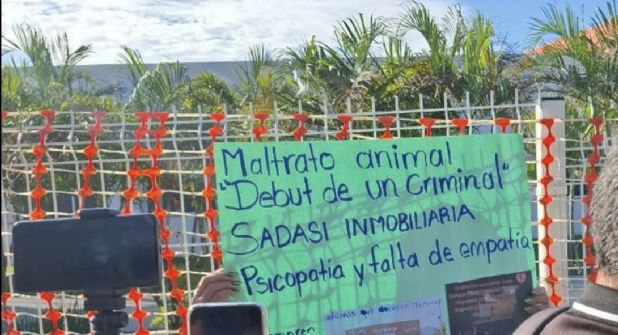 Maltrato animal
"Debut de un Criminal"
SADASI INMOBILIARIA
Psicopatía y falta de empatía